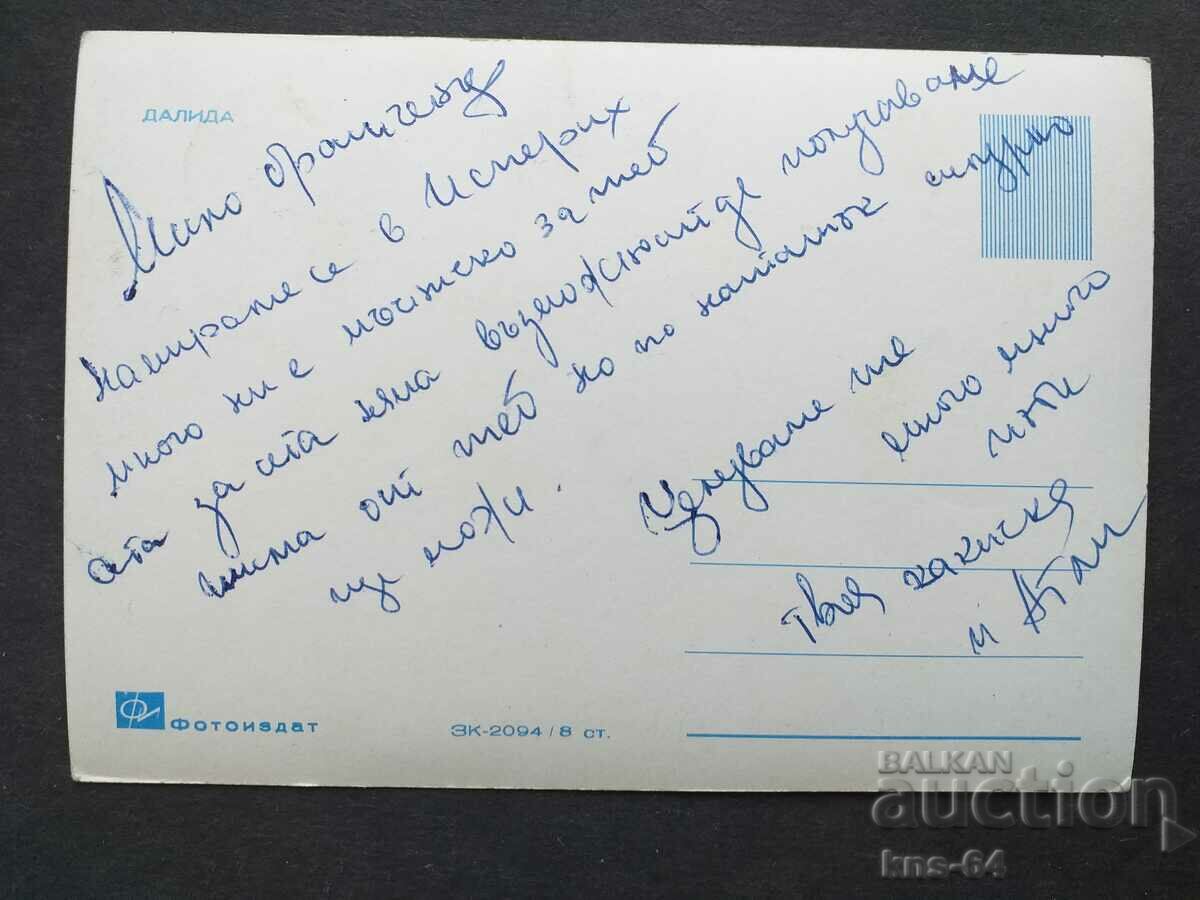 ДАЛИДА
Мило братченце
намираме се в Исперих
много ни е мъчнско за теб
за сега няма възможност да получаваме
писма от теб но по нататък сигурно
ще може.
Целуваме те
много много
Твоя какичка
и
Фотоиздат
ЗК-2094/8 ст.
BALKAN
auction
kns-64